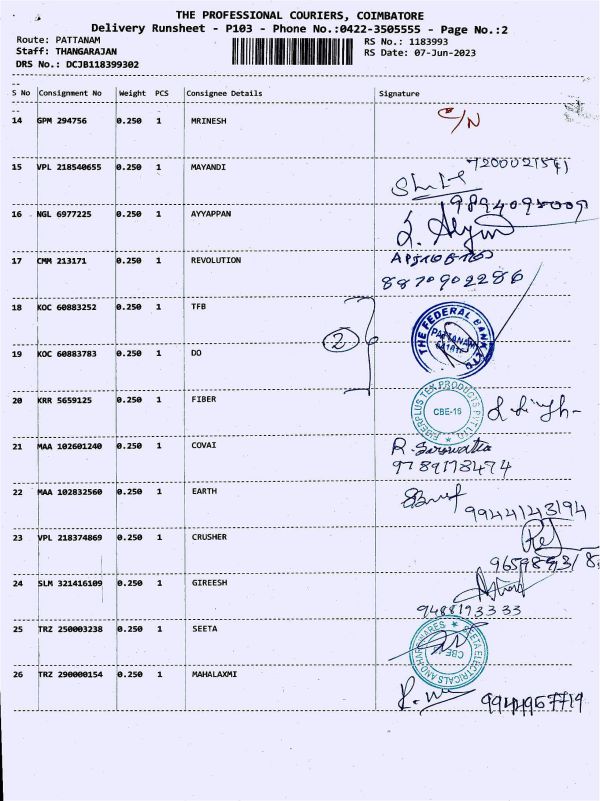 THE PROFESSIONAL COURIERS, COIMBATORE
Delivery Runsheet - P103 - Phone No.:0422-3505555 - Page No.:2
Route: PATTANAM
RS No.: 1183993
Staff: THANGARAJAN
RS Date: 07-Jun-2023
DRS No.: DCJB118399302
S No Consignment No Weight PCS Consignee Details Signature
14 GPM 294756 0.250 1 MRINESH C/N
15 VPL 218540655 0.250 1 MAYANDI
16 NGL 6977225 0.250 1 AYYAPPAN
17 CMM 213171 0.250 1 REVOLUTION
8870902286
18 KOC 60883252 0.250 1 TFB THE FEDERAL BANK LTD PATTANAM
2
19 KOC 60883783 0.250 1 DO
20 KRR 5659125 0.250 1 FIBER FIBERPLUS TEX PRODUCTS PVT LTD CBE-16
21 MAA 102601240 0.250 1 COVAI
9789178474
22 MAA 102832560 0.250 1 EARTH
9944143194
23 VPL 218374869 0.250 1 CRUSHER
24 SLM 321416109 0.250 1 GIREESH
9488193333
25 TRZ 250003238 0.250 1 SEETA SEETA ELECTRICALS AND HARDWARES
26 TRZ 290000154 0.250 1 MAHALAXMI